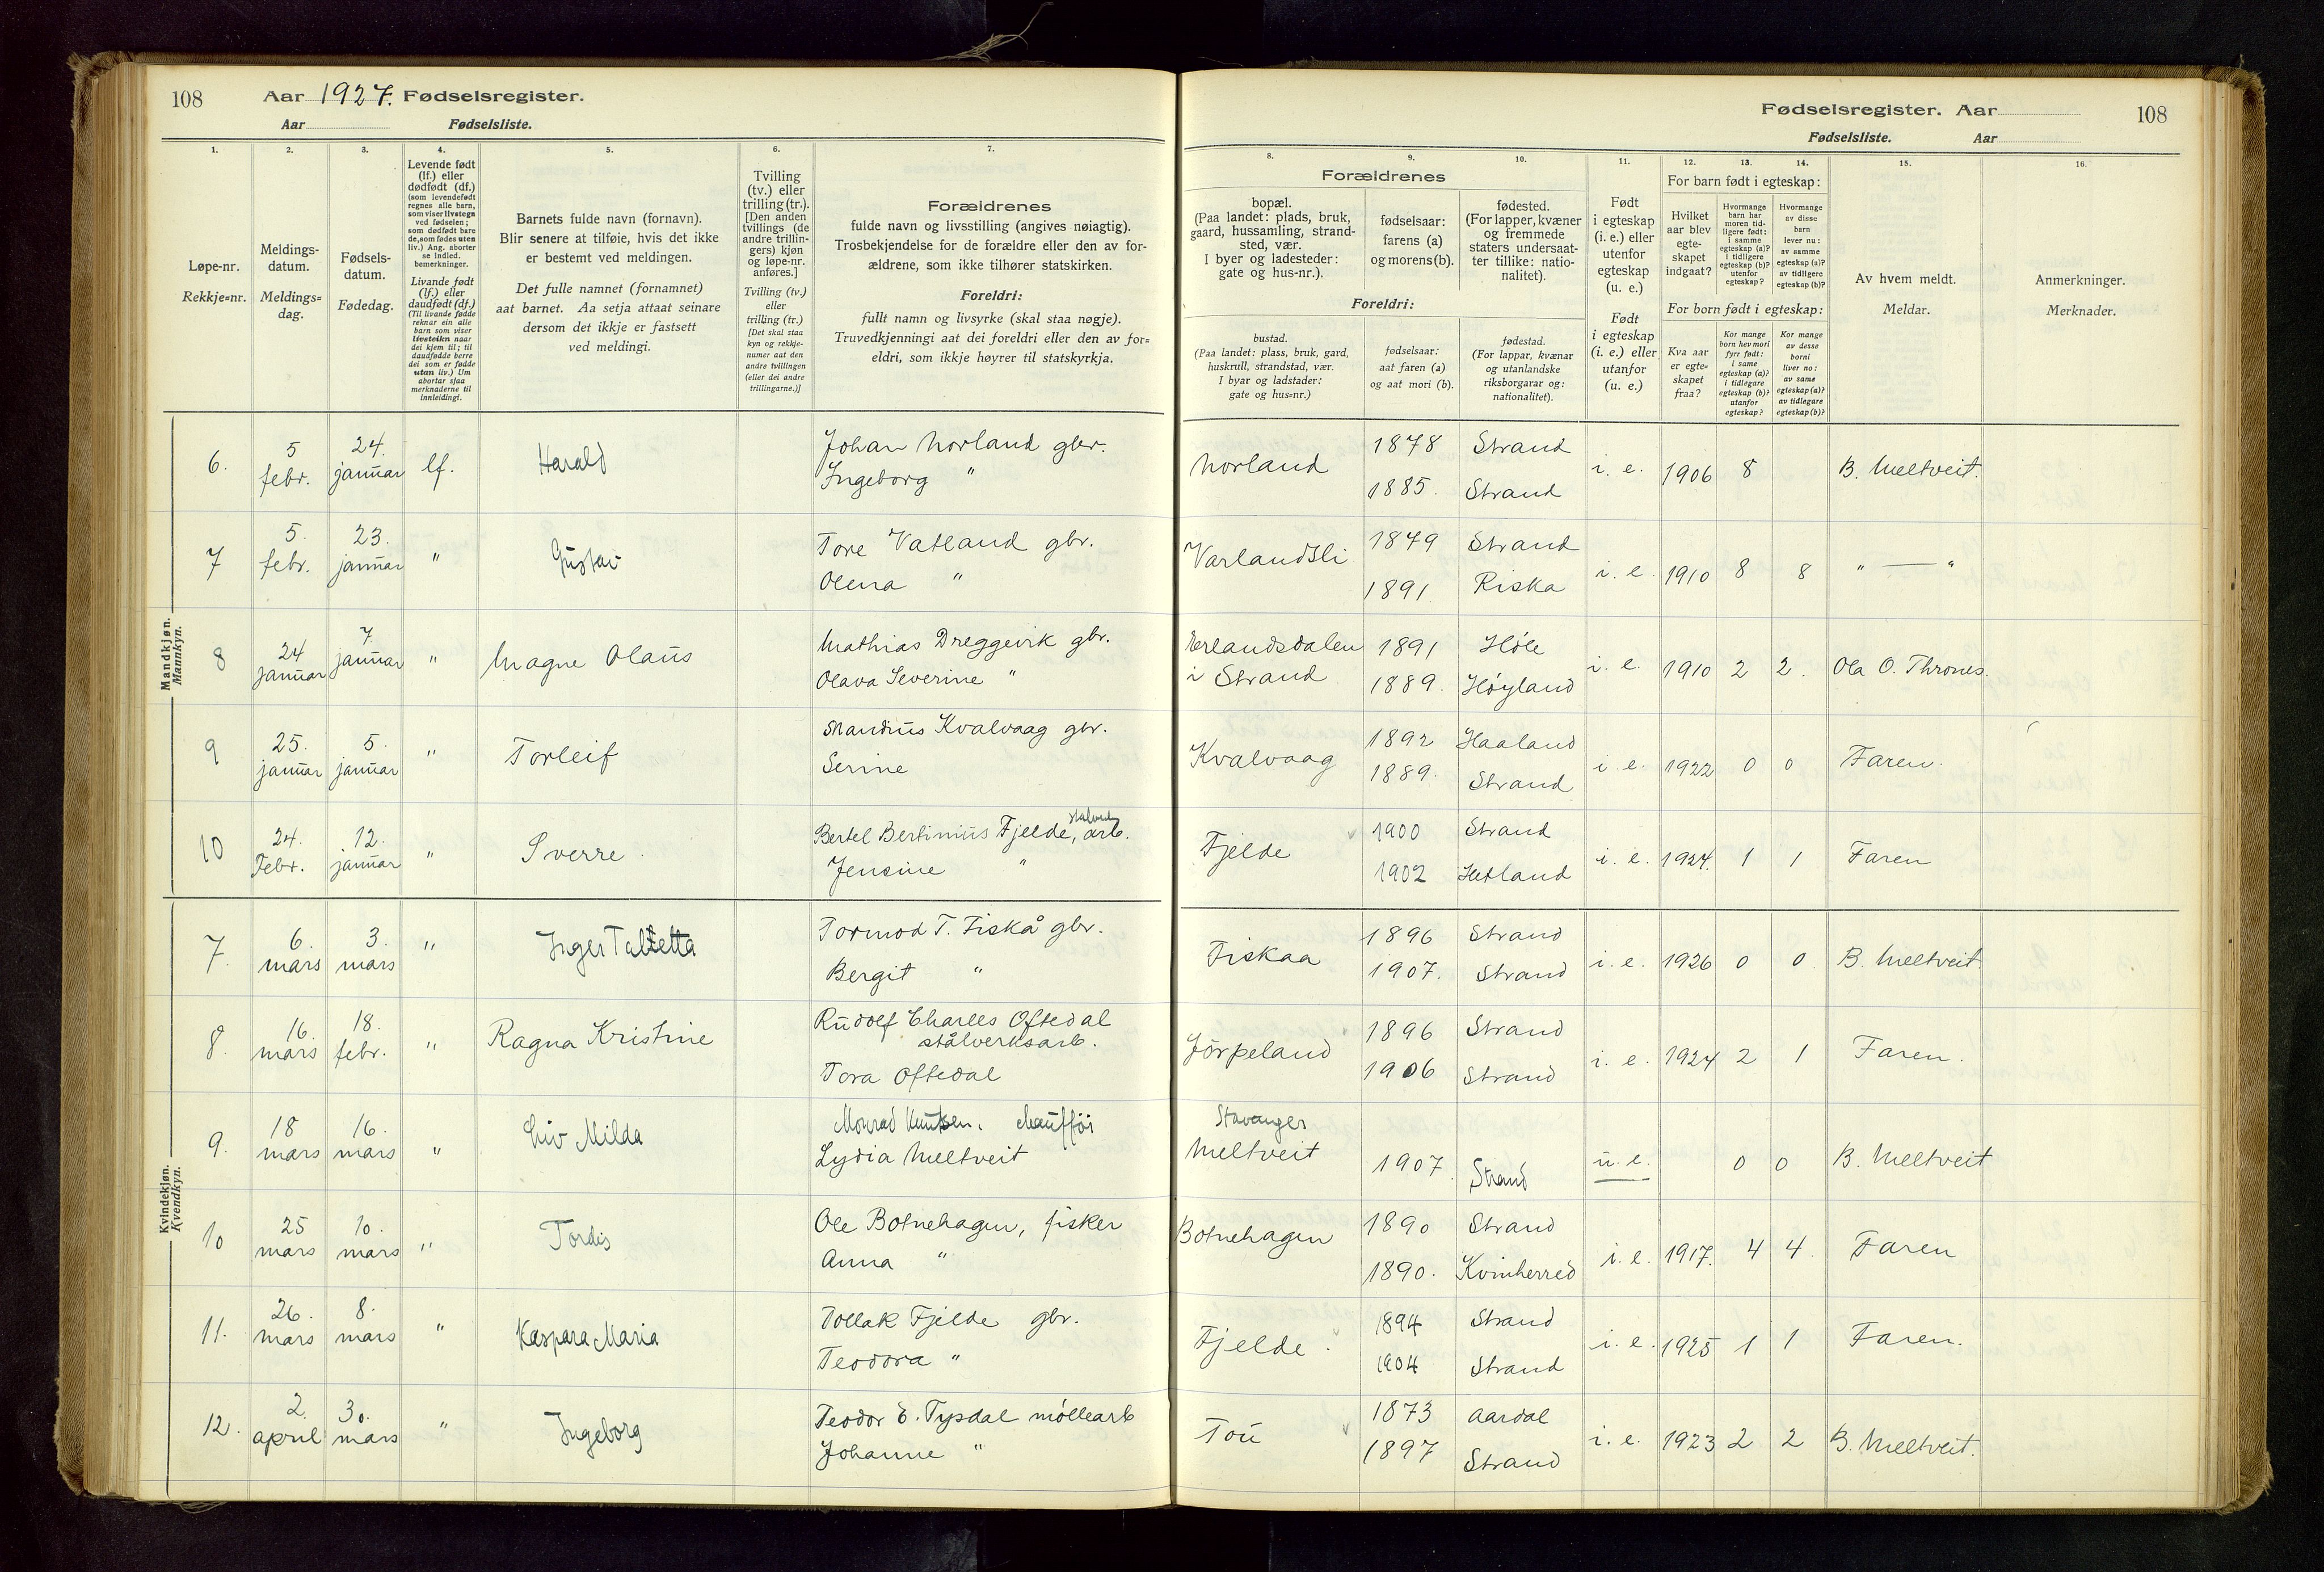 108 Aar 1927. Fødselsregister.
Aar Fødselsliste.
1. 2. 3. 4. 5. 6. 7.
Løpe-nr.
Rekkje=nr.
Meldings-
datum.
Meldings=
dag.
Fødsels-
datum.
Fødedag.
Levende født
(lf.) eller
dødfødt (df.)
(som levendefødt
regnes alle barn,
som viser livstegn
ved fødselen;
som dødfødt bare
de, som fødes uten
liv.) Ang. aborter
se indled.
bemerkninger.
Livande født
(lf.) eller
daudfødt (df.)
(Til livande fødde
reknar ein alle
barn som viser
livsteikn naar
dei kjem til; til
daudfødde berre
dei som er fødde
utan liv.) Um
abortar sjaa
merknaderne til
innleidingi.
Barnets fulde navn (fornavn).
Blir senere at tilføie, hvis det ikke
er bestemt ved meldingen.
Det fulle namnet (fornamnet)
aat barnet. Aa setja attaat seinare
dersom det ikkje er fastsett
ved meldingi.
Tvilling
(tv.) eller
trilling (tr.).
[Den anden
tvillings (de
andre trillin-
gers) kjøn
og løpe-nr.
anføres.]
Tvilling (tv.)
eller
trilling (tr.)
[Det skal staa
kyn og rekkje-
numer aat den
andre tvillingen
(eller dei andre
trillingarne.)]
Forældrenes
fulde navn og livsstilling (angives nøiagtig).
Trosbekjendelse for de forældre eller den av for-
ældrene, som ikke tilhører statskirken.
Foreldri:
fullt namn og livsyrke (skal staa nøgje).
Truvedkjenningi aat dei foreldri eller den av for=
eldri, som ikkje høyrer til statskyrkja.
Mandkjøn.
Mannkyn.
6. 5 febr. 24. januar lf. Harald Johan Norland gbr.
Ingeborg "
7 5. febr. 23. januar " Gustav Tore Vatland gbr.
Olena "
8 24 januar 7. januar " Magne Olaus Mathias Dreggevik gbr.
Olava Severine "
9 25. januar 5. januar " Torleif Mandius Kvalvaag gbr.
Serine
10 24. Febr. 12. januar " Sverre. Bertel Bertinius Fjelde, stålverks arb.
Jensine "
Kvindekjøn.
Kvendkyn.
7. 6. mars 3. mars " Inger Tormod T. Fiskå gbr.
Bergit "
8. 16. mars 18. febr. " Ragna Kristine Rudolf Charles Oftedal
stålverksarb.
Tora Oftedal
9. 18 mars 16. mars " Liv Milda Monrad Knutsen, chauffør
Lydia Meltveit
10 25 mars 10. mars " Tordis Ole Botnehagen, fisker
Anna "
11. 26. mars 8. mars " Kaspara Maria Tollak Fjelde gbr.
Teodora "
12. 2. april 30. mars " Ingeborg Teodor E. Tysdal møllearb
Johanne "
Fødselsregister. Aar 108
Fødselsliste. Aar
8. 9. 10. 11. 12. 13. 14. 15. 16.
Forældrenes
bopæl.
(Paa landet: plads, bruk,
gaard, hussamling, strand-
sted, vær.
I byer og ladesteder:
gate og hus-nr.).
fødselsaar:
farens (a)
og morens (b).
fødested.
(For lapper, kvæner
og fremmede
staters undersaat-
ter tillike: natio-
nalitet).
Foreldri:
bustad.
(Paa landet: plass, bruk, gard,
huskrull, strandstad, vær.
I byar og ladstader:
gate og hus=nr.)
fødselsaar:
aat faren (a)
og aat mori (b).
fødestad.
(For lappar, kvænar
og utanlandske
riksborgarar og:
nationalitet).
Født
i egteskap
(i. e.) eller
utenfor
egteskap
(u. e.)
Født
i egteskap
(i. e.) eller
utanfor
(u. e.)
For barn født i egteskap:
Hvilket
aar blev
egte-
skapet
indgaat?
Hvormange
barn har
moren tid-
ligere født:
i samme
egteskap (a)?
i tidligere
egteskap (b)?
utenfor
egteskap?
Hvormange
av disse
barn
lever nu:
av samme
egteskap (a)?
av tidligere
egteskap (b)?
For born født i egteskap:
Kva aar
er egte=
skapet
fraa?
Kor mange
born hev mori
fyrr født:
i same
egteskap (a)?
i tidlegare
egteskap (b)?
utanfor
egteskap?
Kor mange
av desse
borni
liver no:
av same
egteskap (a)?
av tidlegare
egteskap (b)?
Av hvem meldt.
Meldar.
Anmerkninger.
Merknader.
Norland 1878 Strand i. e. 1906 8 B. Meltveit.
1885. Strand
Varlandsli 1879 Strand i. e. 1910 8 8 " — "
1891. Riska
Erlandsdalen 1891 Høle i. e. 1910 2 2. Ola O. Thrones.
i Strand 1889. Høyland
Kvalvaag 1892 Haaland i. e. 1922 0 0 Faren.
1889. Strand
Fjelde 1900 Strand i. e. 1924. 1 1 Faren
1902 Hetland
Fiskaa 1896 Strand i. e. 1926 0 0 B. Meltveit.
1907. Strand
Jørpeland 1896 Strand i. e. 1924 2 1 Faren.
1906 Strand
Stavanger
Meltveit 1907. Strand u. e. 0 0 B. Meltveit
Botnehagen 1890 Strand i. e. 1917. 4 4 Faren
1890. Kvinherred
Fjelde. 1894 Strand i. e. 1925 1 1 Faren.
1904 Strand
Tou 1873 Aardal i. e. 1923 2 2 B. Meltveit.
1897 Strand